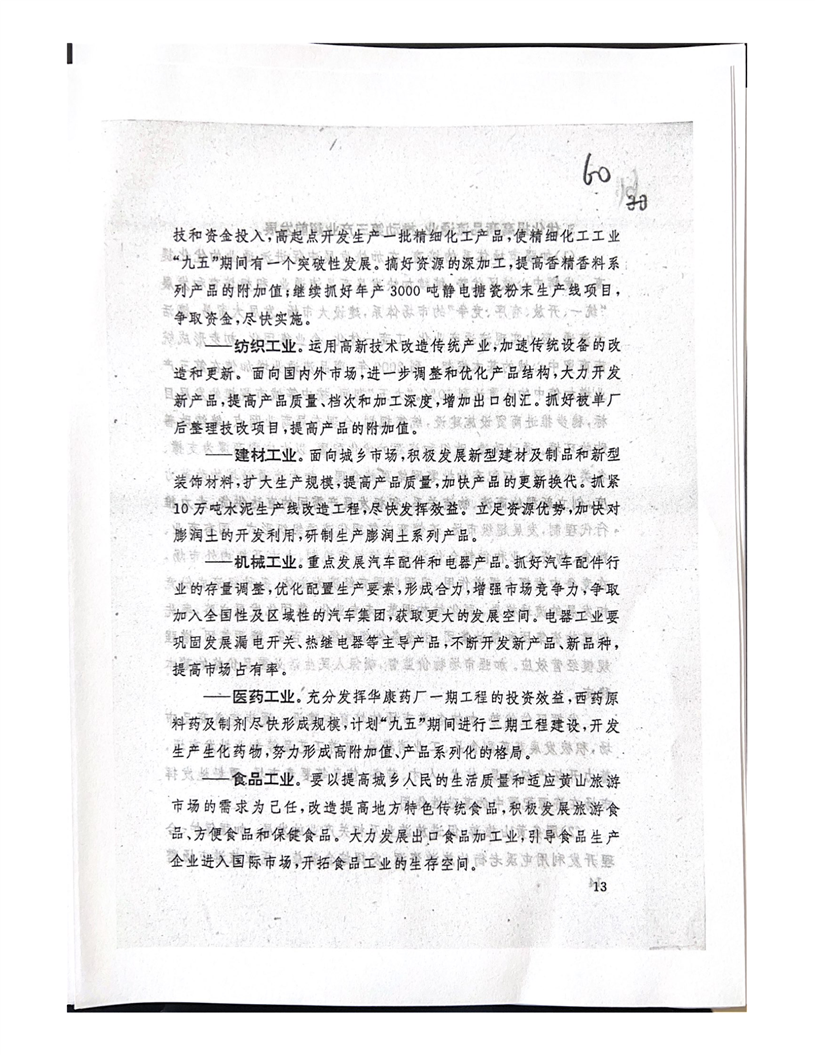 60
技和资金投入,高起点开发生产一批精细化工产品,使精细化工工业
“九五”期间有一个突破性发展。搞好资源的深加工,提高香精香料系
列产品的附加值;继续抓好年产3000吨静电搪瓷粉末生产线项目,
争取资金,尽快实施。
——纺织工业。运用高新技术改造传统产业,加速传统设备的改
造和更新。面向国内外市场,进一步调整和优化产品结构,大力开发
新产品,提高产品质量、档次和加工深度,增加出口创汇。抓好被单厂
后整理技改项目,提高产品的附加值。
——建材工业。面向城乡市场,积极发展新型建材及制品和新型
装饰材料,扩大生产规模,提高产品质量,加快产品的更新换代。抓紧
10万吨水泥生产线改造工程,尽快发挥效益。立足资源优势,加快对
膨润土的开发利用,研制生产膨润土系列产品。
——机械工业。重点发展汽车配件和电器产品。抓好汽车配件行
业的存量调整,优化配置生产要素,形成合力,增强市场竞争力,争取
加入全国性及区域性的汽车集团,获取更大的发展空间。电器工业要
巩固发展漏电开关、热继电器等主导产品,不断开发新产品、新品种,
提高市场占有率。
——医药工业。充分发挥华康药厂一期工程的投资效益,西药原
料药及制剂尽快形成规模,计划“九五”期间进行二期工程建设,开发
生产生化药物,努力形成高附加值、产品系列化的格局。
——食品工业。要以提高城乡人民的生活质量和适应黄山旅游
市场的需求为己任,改造提高地方特色传统食品,积极发展旅游食
品、方便食品和保健食品。大力发展出口食品加工业,引导食品生产
企业进入国际市场,开拓食品工业的生存空间。
13